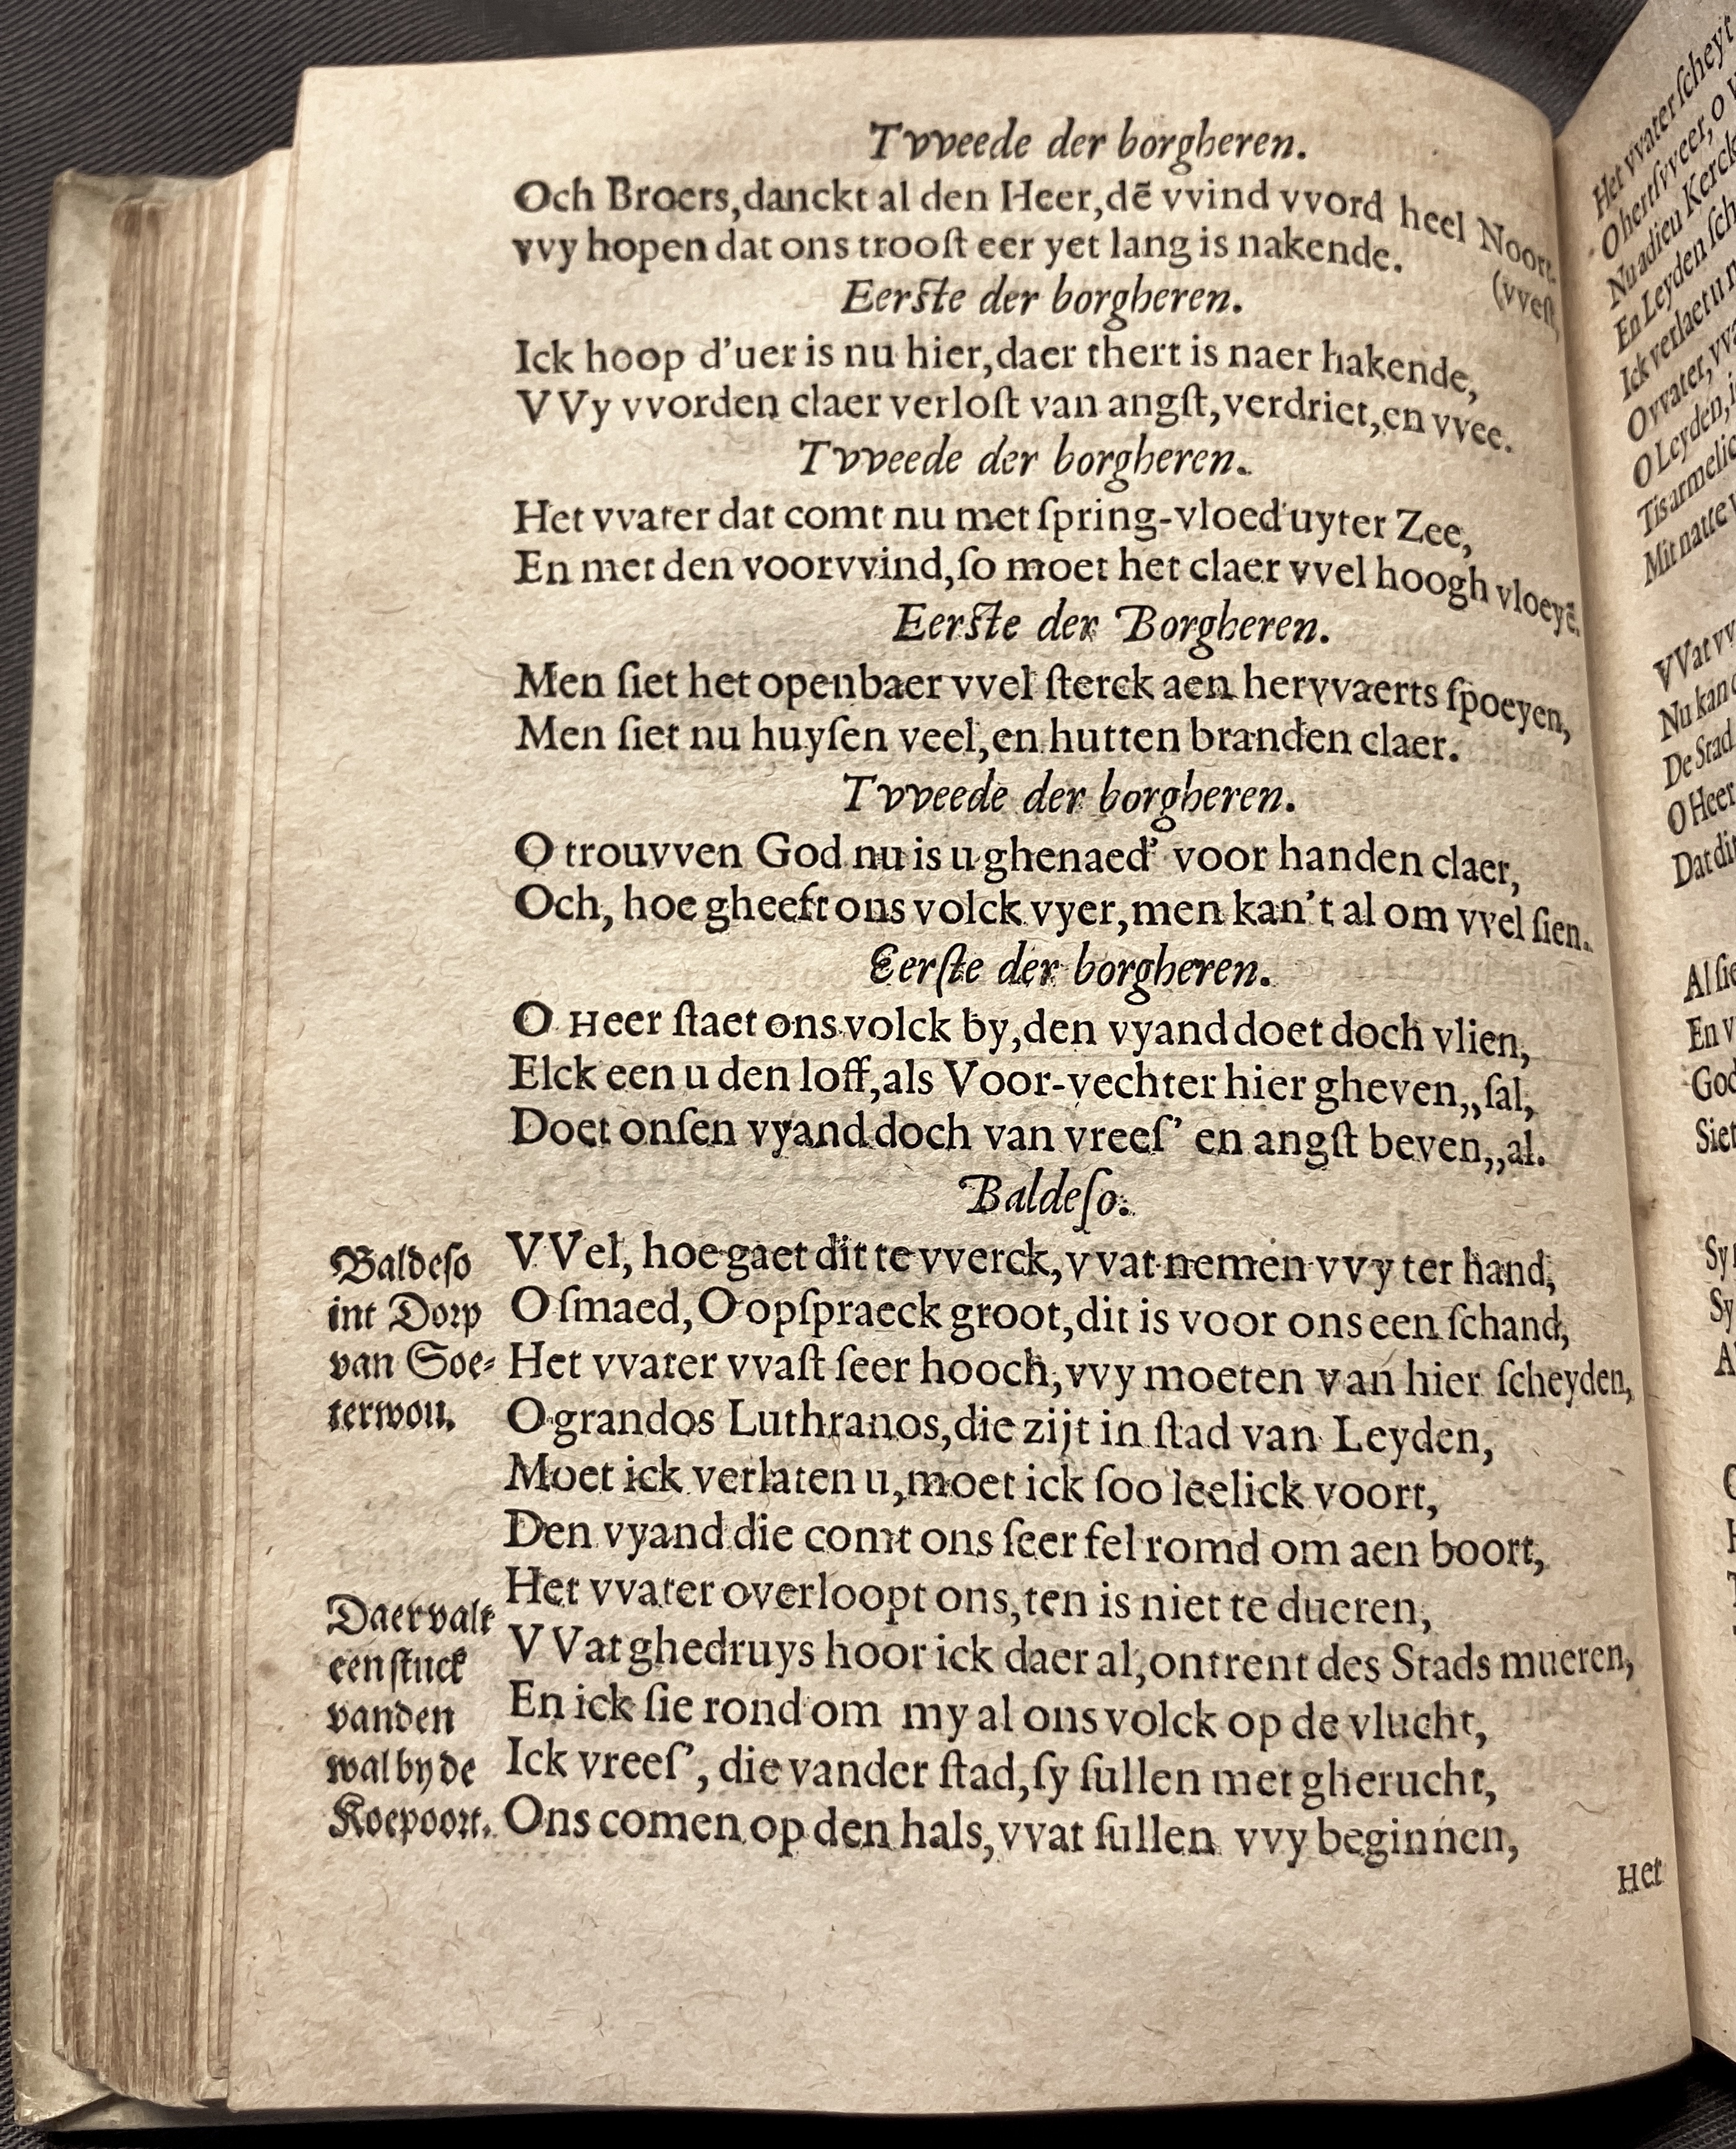 Tvveede der borgheren.
Och Broers, danckt al den Heer, dẽ vvind vvord heel Noort-
(vvest,
vvy hopen dat ons troost eer yet lang is nakende.
Eerste der borgheren.
Ick hoop d'uer is nu hier, daer thert is naer hakende,
VVy vvorden claer verlost van angst, verdriet, en vvee.
Tvveede der borgheren.
Het vvater dat comt nu met spring-vloed uyter Zee,
En met den voorvvind, so moet het claer vvel hoogh vloeyẽ.
Eerste der Borgheren.
Men siet het openbaer vvel sterck aen hervvaerts spoeyen,
Men siet nu huysen veel, en hutten branden claer.
Tvveede der borgheren.
O trouvven God nu is u ghenaed' voor handen claer,
Och, hoe gheeft ons volck vyer, men kan't al om vvel sien.
Eerste der borgheren.
O Heer staet ons volck by, den vyand doet doch vlien,
Elck een u den loff, als Voor-vechter hier gheven,, sal,
Doet onsen vyand doch van vrees' en angst beven,, al.
Baldeso.
Baldeso
int Dorp
van Soe-
terwou.
VVel, hoe gaet dit te vverck, vvat nemen vvy ter hand,
O smaed, O opspraeck groot, dit is voor ons een schand,
Het vvater vvast seer hooch, vvy moeten van hier scheyden,
O grandos Luthranos, die zijt in stad van Leyden,
Moet ick verlaten u, moet ick soo leelick voort,
Den vyand die comt ons seer fel romd om aen boort,
Het vvater overloopt ons, ten is niet te dueren,
Daer valt
een stuck
vanden
wal by de
Koepoort.
VVat ghedruys hoor ick daer al, ontrent des Stads mueren,
En ick sie rond om my al ons volck op de vlucht,
Ick vrees', die vander stad, sy sullen met gherucht,
Ons comen op den hals, vvat sullen vvy beginnen,
Het
Het vvater scheyt
O hertsvveer, o
Nu adieu Kerck
En Leyden
Ick verlaet u
O vvater,
O Leyden,
Tis armelic
Mit natte
VVat
Nu kan
De Stad
O Heer
Dat dit
Al sie
En
God
Siet
Sy
Sy